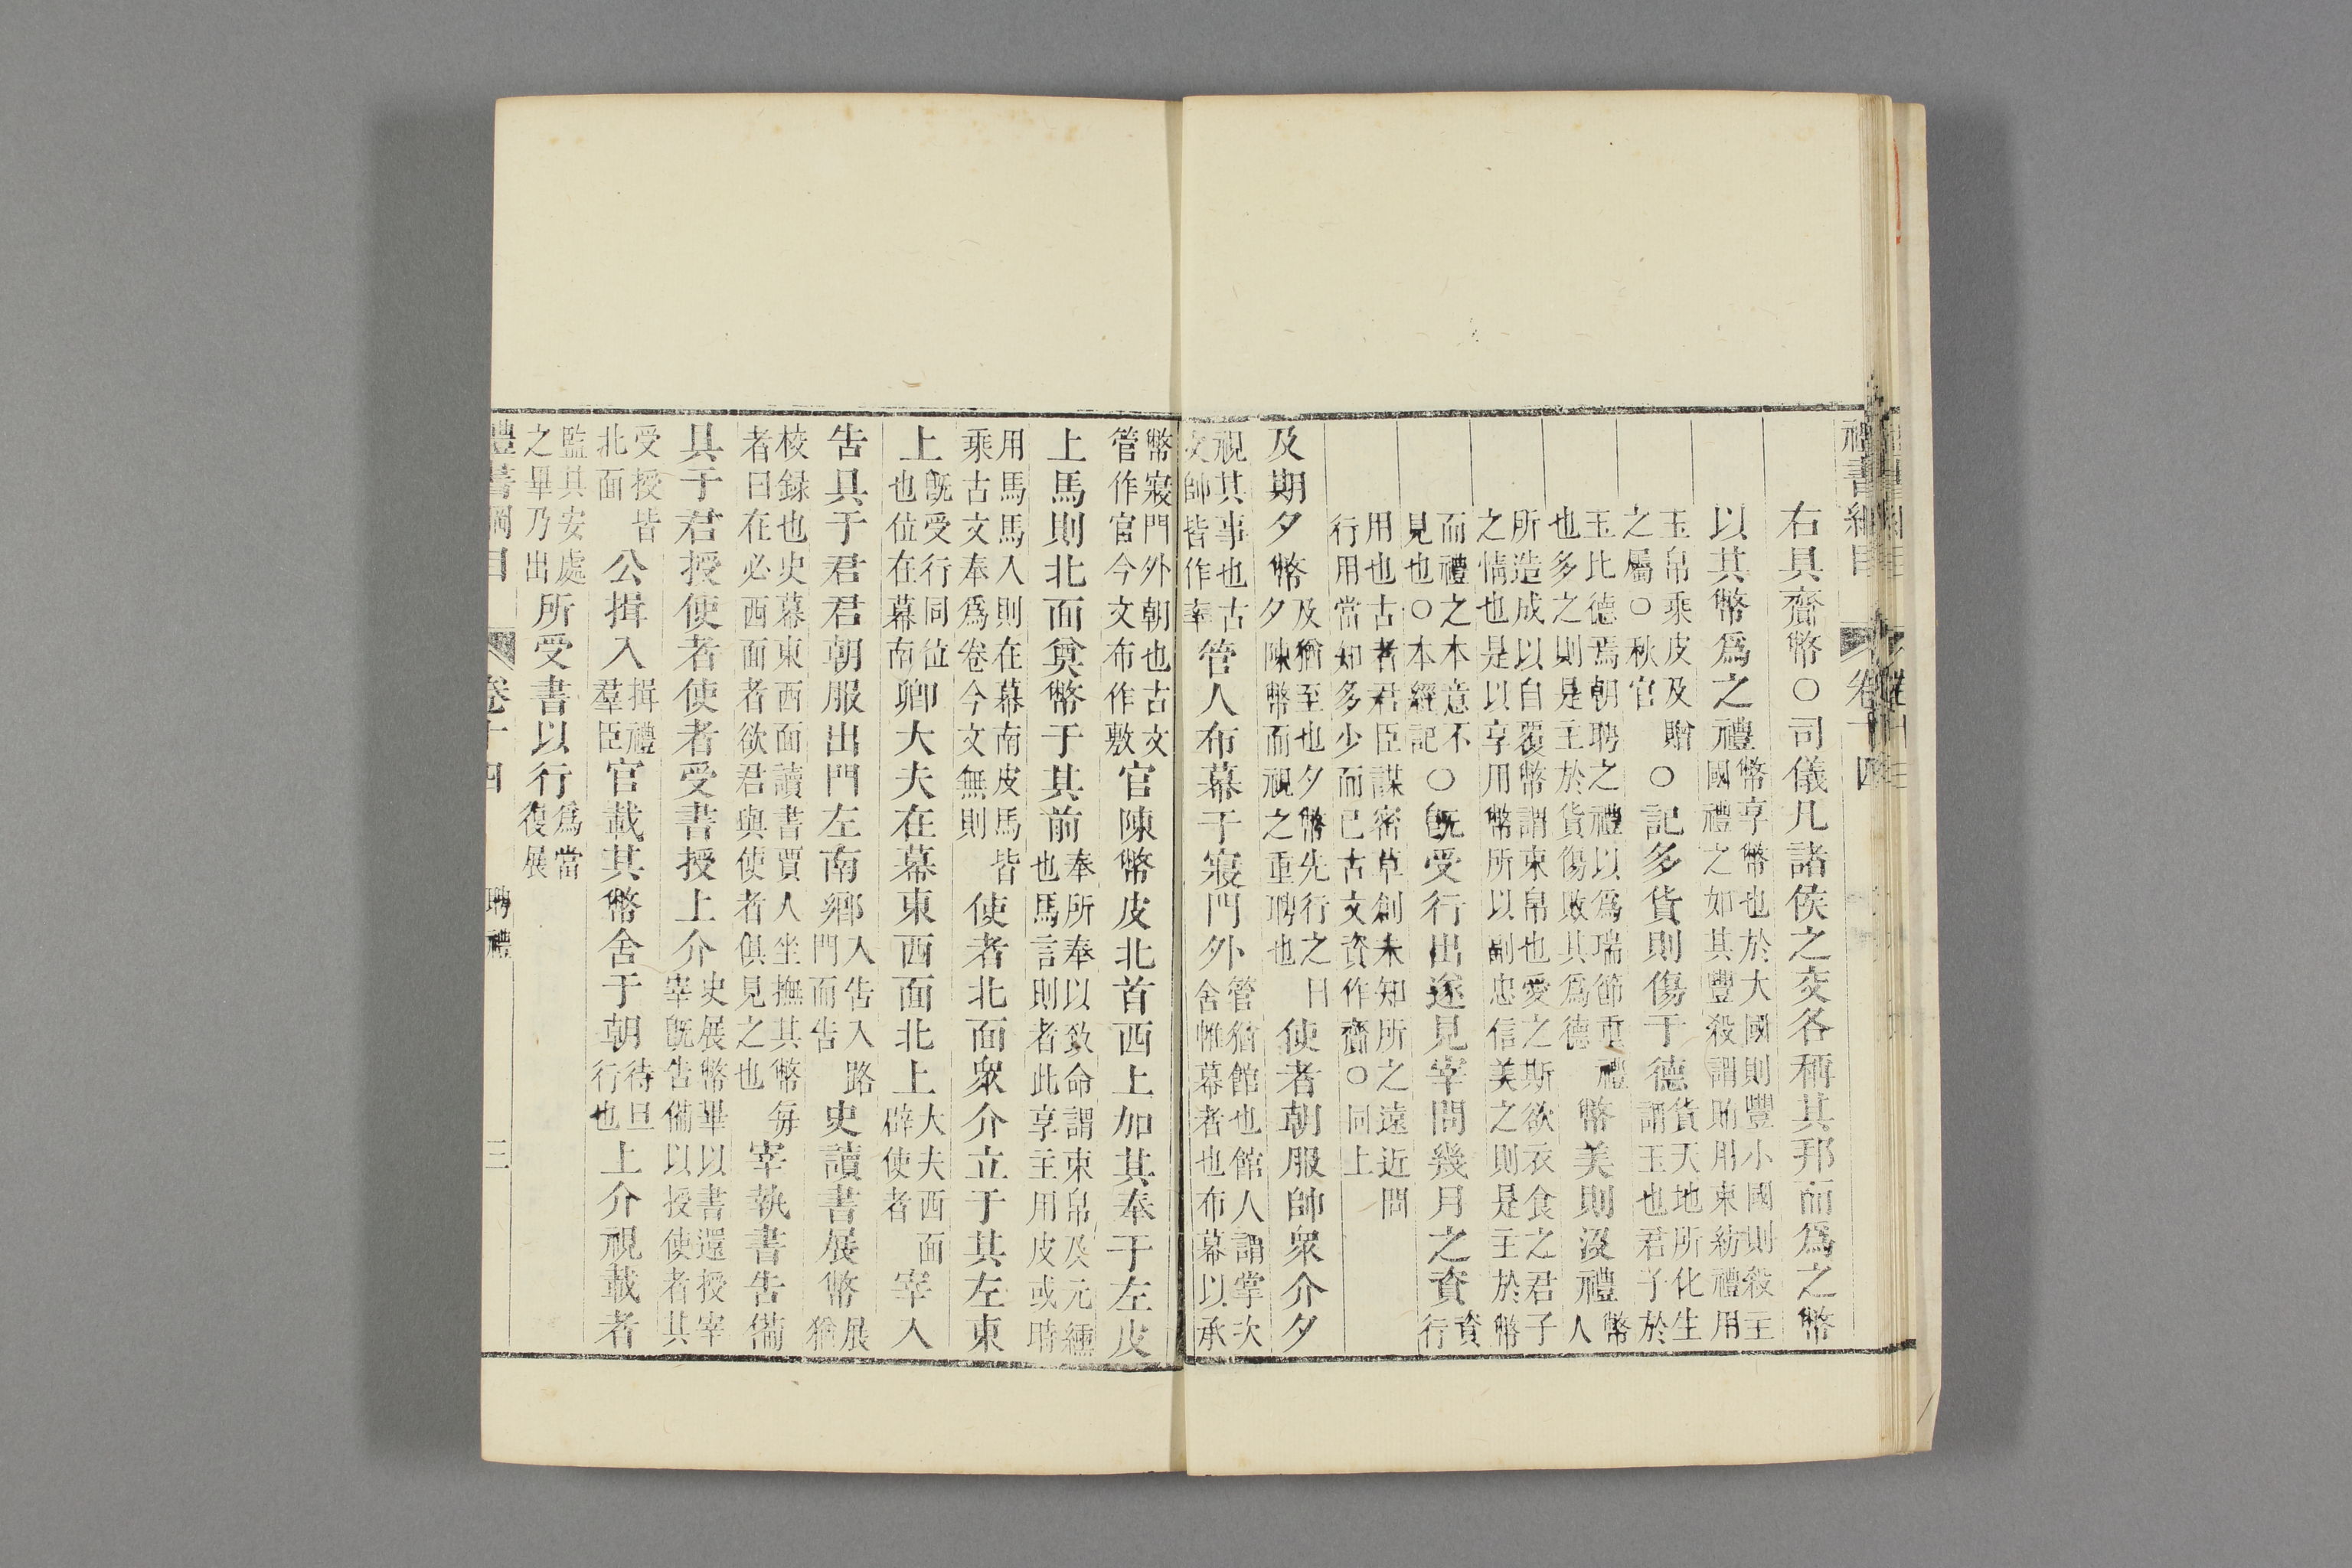 禮書綱目 卷十四
右具齎幣○司儀凡諸侯之交各稱其邦而爲之幣
以其幣爲之禮
幣享幣也於大國則豐小國則殺主
國禮之如其豐殺謂賄用束紡禮用
玉帛乘皮及贈
之屬○秋官
○記多貨則傷于德
貨天地所化生
謂玉也君子於
玉比德焉朝聘之禮以爲瑞節重禮
也多之則是主於貨傷敗其爲德
幣美則沒禮
幣
人
所造成以自覆幣謂束帛也愛之斯欲衣食之君子
之情也是以享用幣所以副忠信美之則是主於幣
而禮之本意不
見也○本經記
○旣受行出遂見宰問幾月之資
資
行
用也古者君臣謀密草創未知所之遠近問
行用當知多少而已古文資作齎○同上
及期夕幣
及猶至也夕幣先行之日
夕陳幣而視之重聘也
使者朝服帥衆介夕
視其事也古
文帥皆作率
管人布幕于寢門外
管猶館也館人謂掌次
舍帷幕者也布幕以承
幣寢門外朝也古文
管作官今文布作敷
官陳幣皮北首西上加其奉于左皮
上馬則北面奠幣于其前
奉所奉以致命謂束帛及元纁
也馬言則者此享主用皮或時
用馬馬入則在幕南皮馬皆
乘古文奉爲卷今文無則
使者北面衆介立于其左東
上
旣受行同位
也位在幕南
卿大夫在幕東西面北上
大夫西面
辟使者
宰入
告具于君君朝服出門左南鄉
入告入路
門而告
史讀書展幣
展
猶
校録也史幕東西面讀書賈人坐撫其幣每
者曰在必西面者欲君與使者俱見之也
宰執書告備
具于君授使者使者受書授上介
史展幣畢以書還授宰
宰旣告備以授使者其
受授皆
北面
公揖入
揖禮
羣臣
官載其幣舍于朝
待旦
行也
上介視載者
監其安處
之畢乃出
所受書以行
爲當
復展
禮書綱目 卷十四 聘禮 三